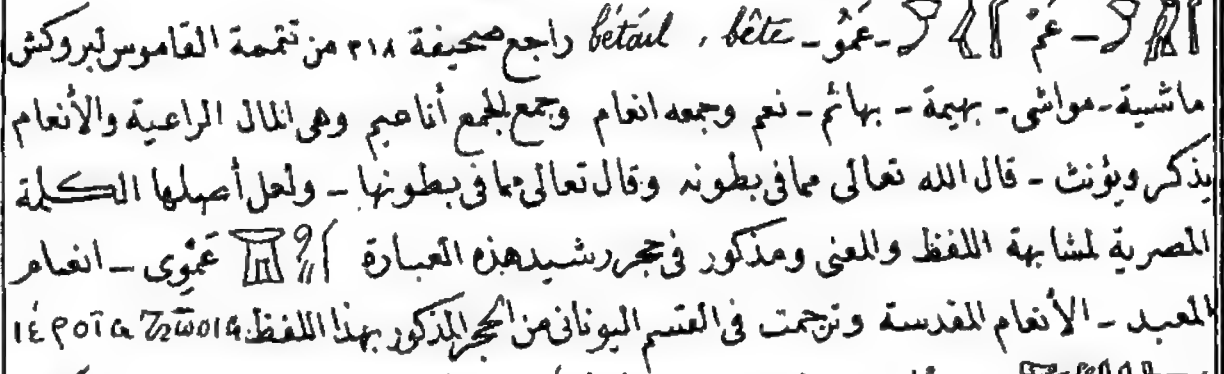 عَمُ ـ عَمُو ـ bétail , bête راجع صحيفة ٣١٨ من تتمة القاموس لبروكش
ماشية ـ مواشى ـ بهيمة ـ بهائم ـ نعم وجمعه انعام وجمع الجمع أناعيم وهى المال الراعية والأنعام
يذكر ويؤنث ـ قال الله تعالى مما فى بطونه وقال تعالى مما فى بطونها ـ ولعل أصلها الكلمة
المصرية لمشابهة اللفظ والمعنى ومذكور فى حجر رشيد هذه العبارة عَمْوِى ـ انعام
المعبد ـ الأنعام المقدسة وترجمت فى القسم اليونانى من الحجر المذكور بهذا اللفظ